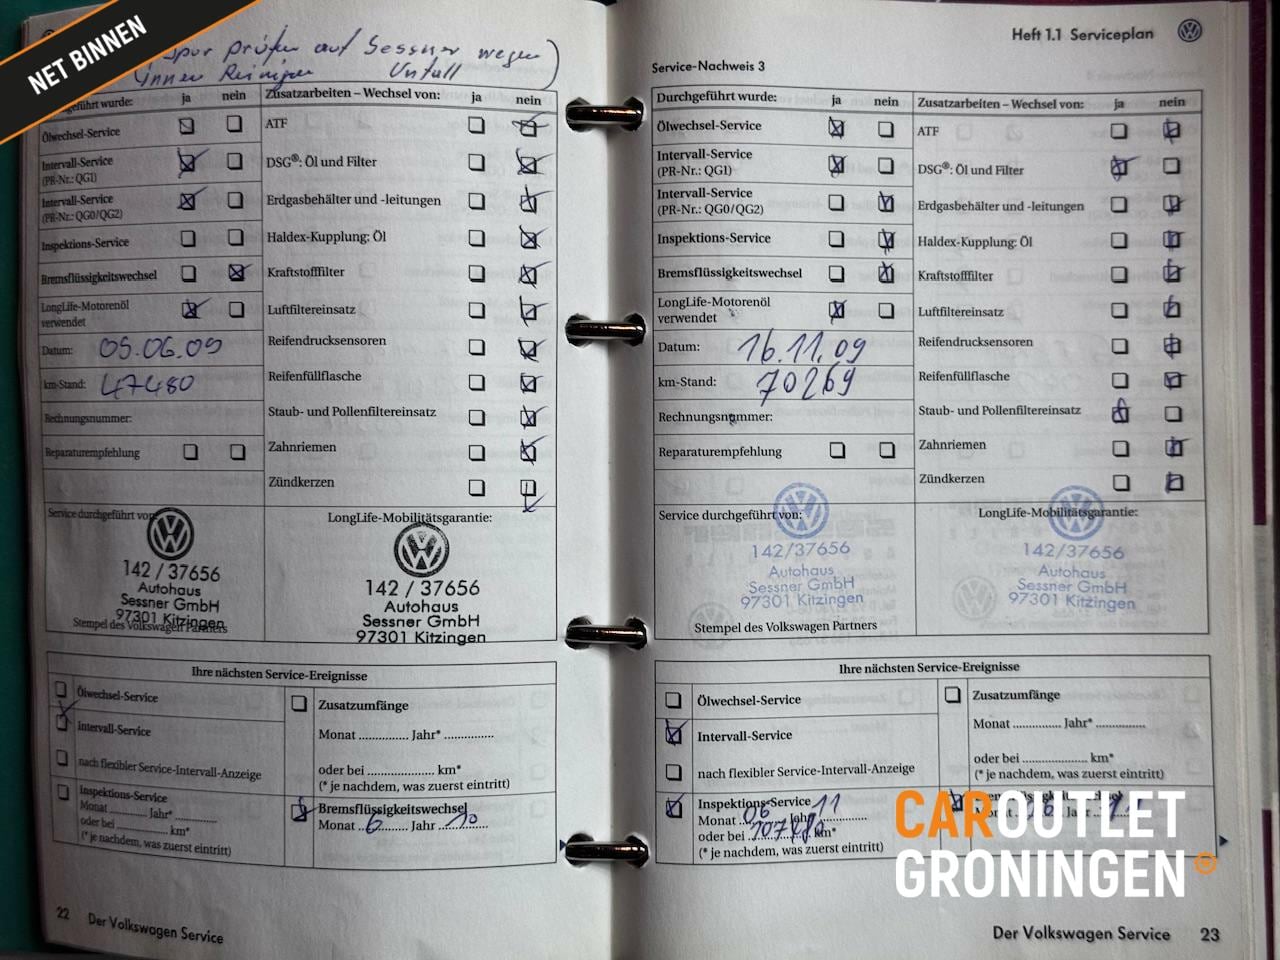 NET BINNEN
Spur prüfen auf Sessner wegen)
innen Reinigen Unfall
Durchgeführt wurde: ja nein
Zusatzarbeiten – Wechsel von: ja nein
Ölwechsel-Service
ATF
Intervall-Service
(PR-Nr.: QG1)
DSG®: Öl und Filter
Intervall-Service
(PR-Nr.: QG0/QG2)
Erdgasbehälter und -leitungen
Inspektions-Service
Haldex-Kupplung: Öl
Bremsflüssigkeitswechsel
Kraftstofffilter
LongLife-Motorenöl
verwendet
Luftfiltereinsatz
Datum: 05.06.09
Reifendrucksensoren
km-Stand: 47480
Reifenfüllflasche
Rechnungsnummer:
Staub- und Pollenfiltereinsatz
Reparaturempfehlung
Zahnriemen
Zündkerzen
Service durchgeführt von:
142 / 37656
Autohaus
Sessner GmbH
97301 Kitzingen
Stempel des Volkswagen Partners
LongLife-Mobilitätsgarantie:
142 / 37656
Autohaus
Sessner GmbH
97301 Kitzingen
Ihre nächsten Service-Ereignisse
Ölwechsel-Service
Intervall-Service
nach flexibler Service-Intervall-Anzeige
Inspektions-Service
Monat ............ Jahr* ............
oder bei ............ km*
(* je nachdem, was zuerst eintritt)
Zusatzumfänge
Monat ............ Jahr* ............
oder bei ............ km*
(* je nachdem, was zuerst eintritt)
Bremsflüssigkeitswechsel
Monat 6 Jahr 10
22 Der Volkswagen Service
Heft 1.1 Serviceplan
Service-Nachweis 3
Durchgeführt wurde: ja nein
Zusatzarbeiten – Wechsel von: ja nein
Ölwechsel-Service
ATF
Intervall-Service
(PR-Nr.: QG1)
DSG®: Öl und Filter
Intervall-Service
(PR-Nr.: QG0/QG2)
Erdgasbehälter und -leitungen
Inspektions-Service
Haldex-Kupplung: Öl
Bremsflüssigkeitswechsel
Kraftstofffilter
LongLife-Motorenöl
verwendet
Luftfiltereinsatz
Datum: 16.11.09
Reifendrucksensoren
km-Stand: 70269
Reifenfüllflasche
Rechnungsnummer:
Staub- und Pollenfiltereinsatz
Reparaturempfehlung
Zahnriemen
Zündkerzen
Service durchgeführt von:
142/37656
Autohaus
Sessner GmbH
97301 Kitzingen
Stempel des Volkswagen Partners
LongLife-Mobilitätsgarantie:
142/37656
Autohaus
Sessner GmbH
97301 Kitzingen
Ihre nächsten Service-Ereignisse
Ölwechsel-Service
Intervall-Service
nach flexibler Service-Intervall-Anzeige
Inspektions-Service
Monat 06 Jahr 11
oder bei km*
(* je nachdem, was zuerst eintritt)
Zusatzumfänge
Monat ............ Jahr* ............
oder bei ............ km*
(* je nachdem, was zuerst eintritt)
CAROUTLET
GRONINGEN
Der Volkswagen Service 23